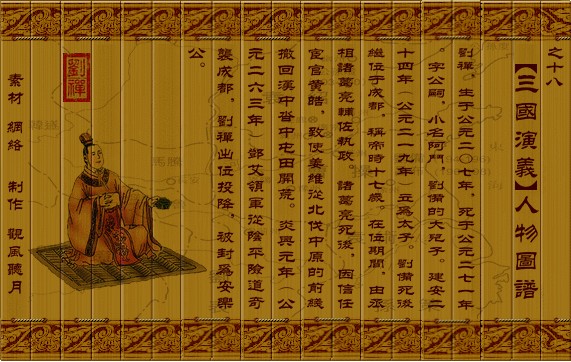 之十八
【三國演義】人物圖譜
劉禪，生于公元二〇七年，死于公元二七一年
。字公嗣，小名阿鬥，劉備的大兒子。建安二
十四年（公元二一九年）立爲太子。劉備死後
繼位于成都，稱帝時十七歲。在位期間，由丞
相諸葛亮輔佐執政。諸葛亮死後，因信任
宦官黃皓，致使姜維從北伐中原的前綫
撤回漢中沓中屯田開荒。炎興元年（公
元二六三年）鄧艾領軍從陰平險道奇
襲成都，劉禪出位投降，被封爲安樂
公。
劉禪
素材 網絡 制作 觀風聽月